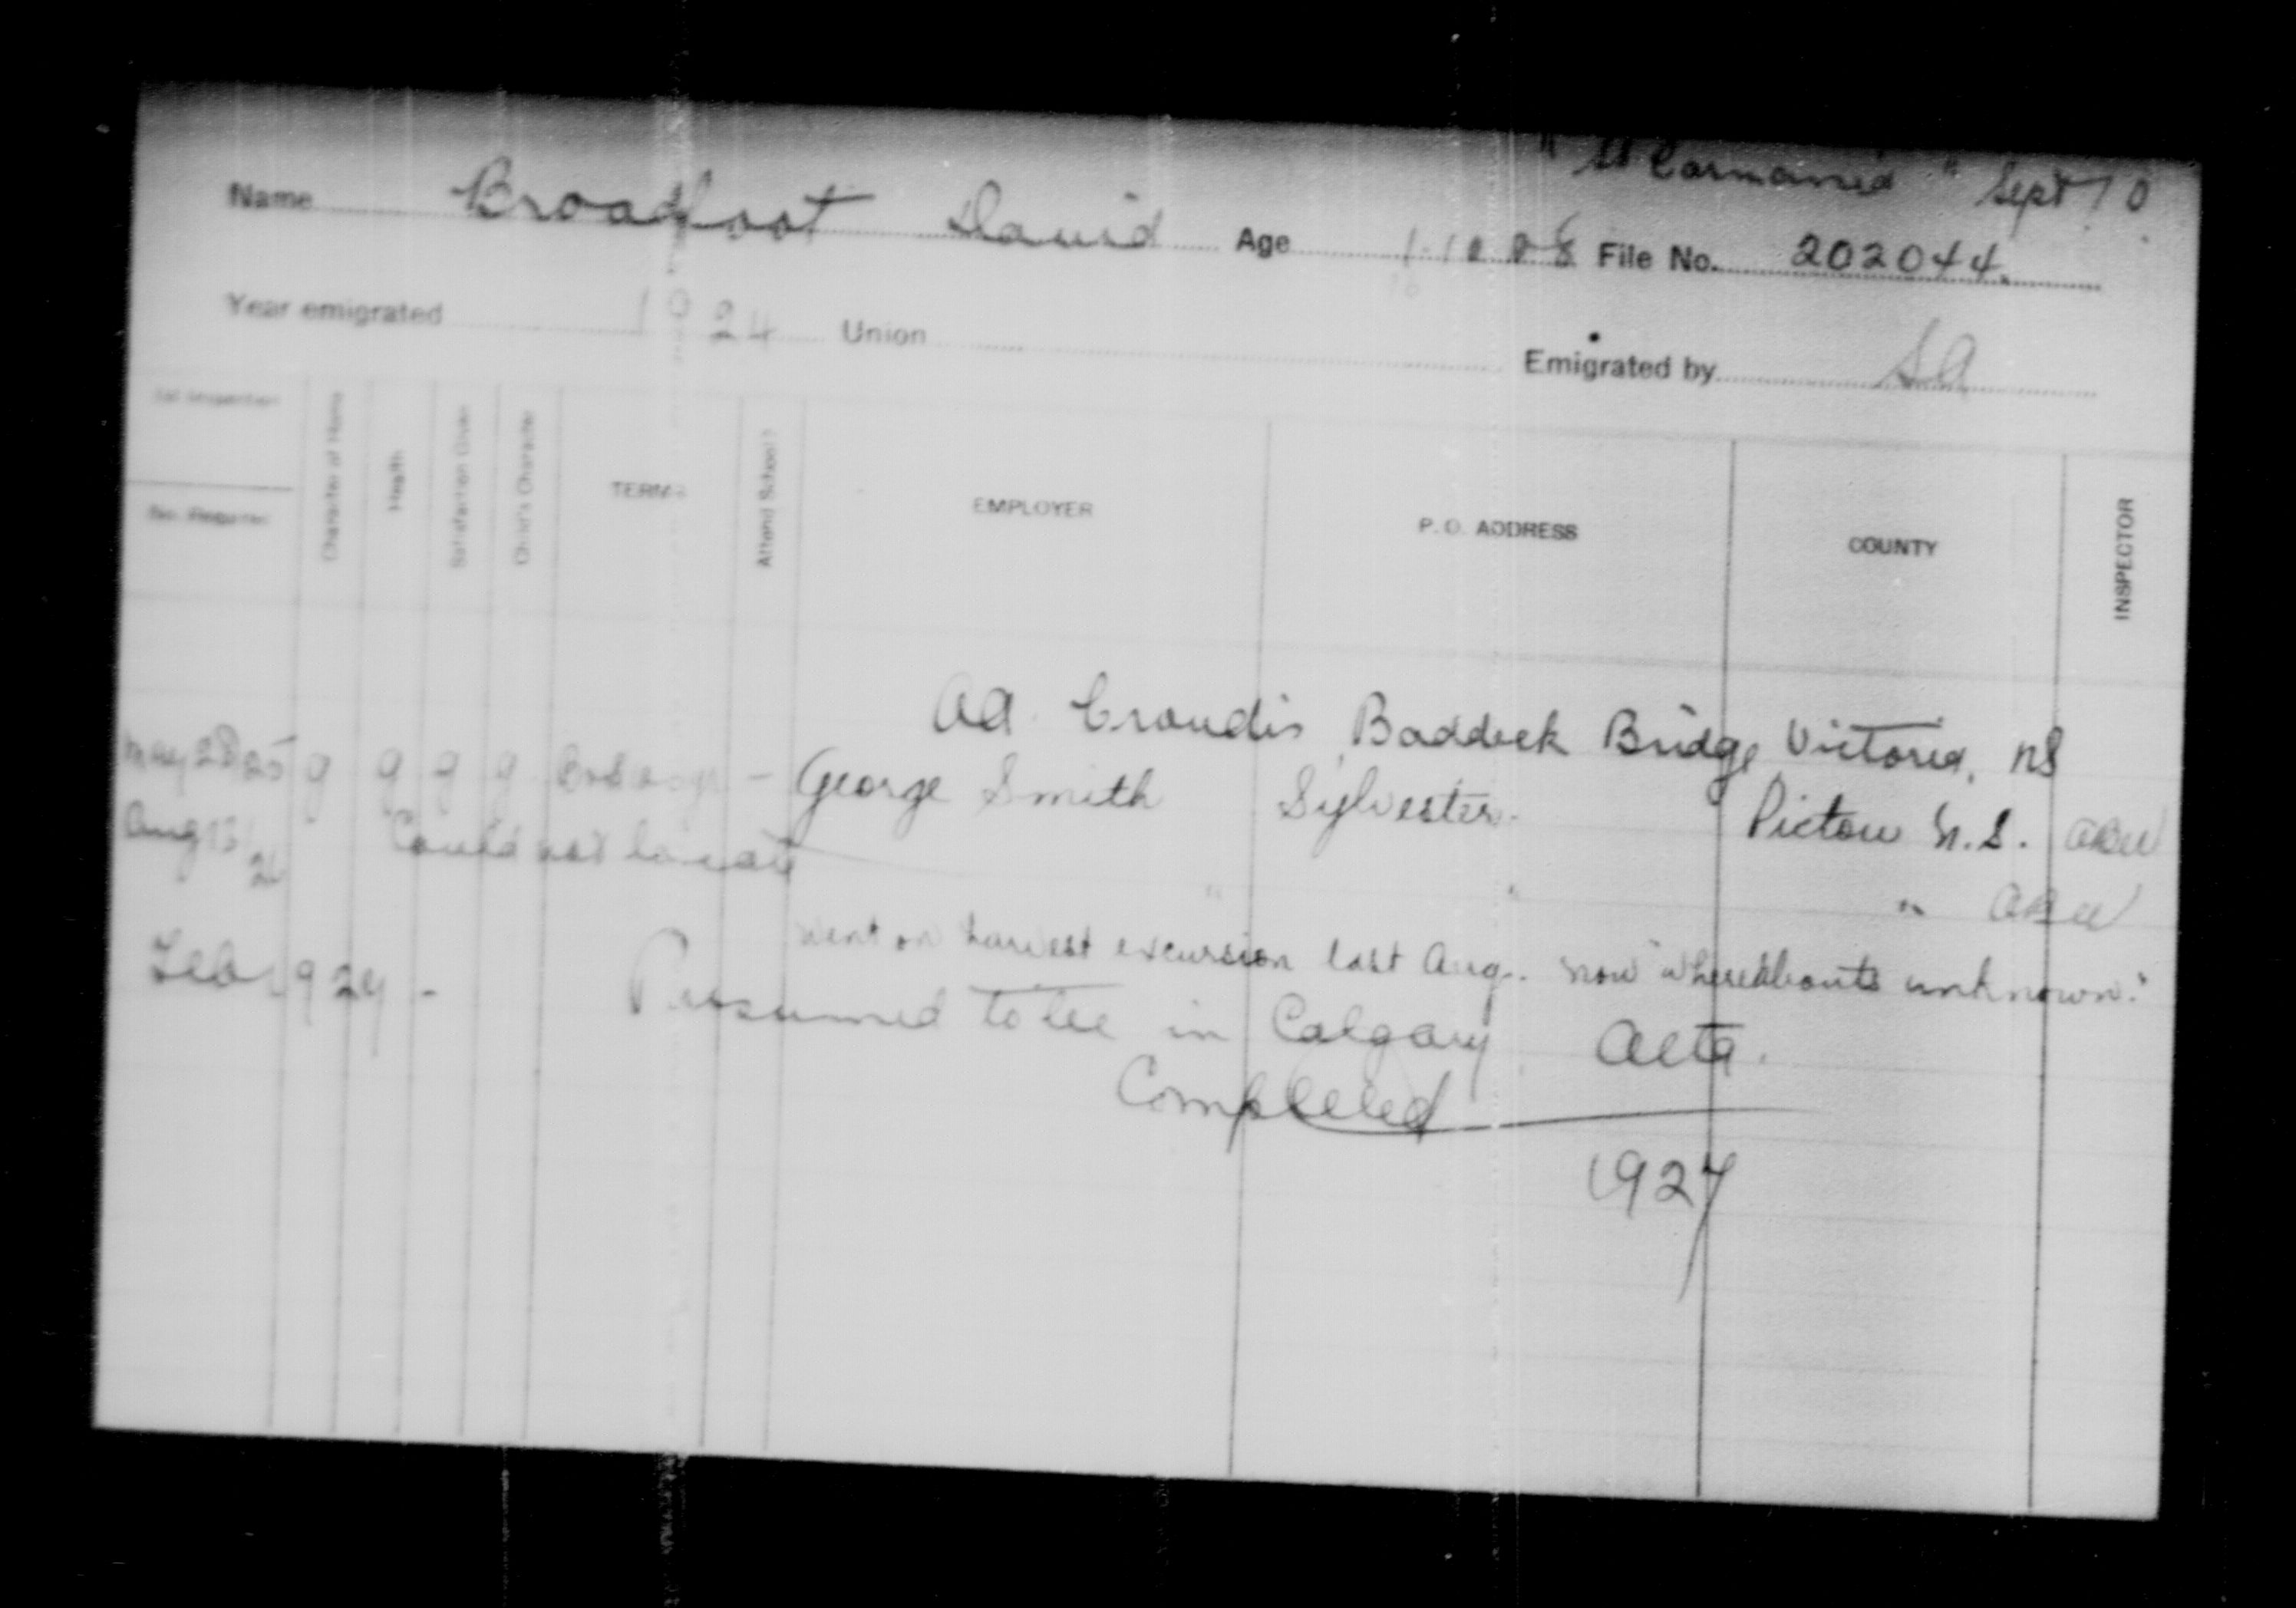 " SS Carmania " Sept 10
Name Broadfoot David Age 1.10.08 File No. 202044.
16
Year emigrated 1924 Union Emigrated by SA
1st Inspection
No. Reports
Character of Home
Health
Satisfaction Given
Child's Character
TERMS
Attend School?
EMPLOYER
P.O. ADDRESS
COUNTY
INSPECTOR
AA Croudis Baddeck Bridge Victoria, NS
May 28 25 g g g g - George Smith Sylvester. Pictou N.S.
Aug 13 26 Could not locate " " "
Went on harvest excursion last Aug. now "whereabouts unknown."
Feb 1927 - Presumed to be in Calgary Alta.
Completed
1927